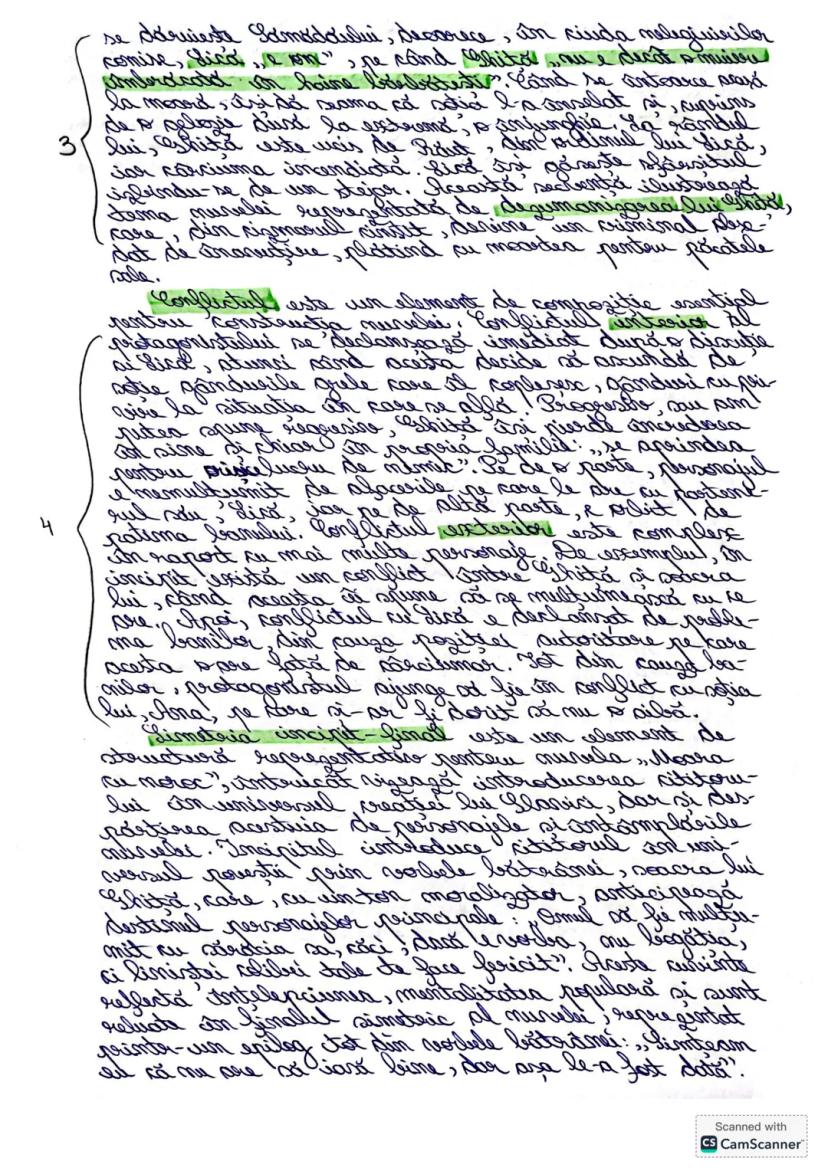 se dăruiește Sămădăului, deoarece, în ciuda nelegiuirilor
comise, Lică „e om”, pe când Ghiță „nu e decât o muiere
îmbrăcată în haine bărbătești”. Când se întoarce seara
la moară, își dă seama că soția l-a înșelat și, cuprins
de o gelozie dusă la extremă, o înjunghie. La rândul
lui, Ghiță este ucis de Răuț, din ordinul lui Lică,
iar cârciuma incendiată. Lică își găsește sfârșitul
izbindu-se de un stejar. Această secvență ilustrează
3
tema nuvelei reprezentată de dezumanizarea lui Ghiță,
care, din cizmarul cinstit, devine un criminal obse-
dat de înavuțire, plătind cu moartea pentru păcatele
sale.
Conflictul este un element de compoziție esențial
pentru construcția nuvelei. Conflictul interior al
protagonistului se declanșează imediat după o discuție
cu Lică, atunci când acesta decide să ascundă de
soție gândurile grele care îl copleșesc, gânduri cu pri-
vire la situația în care se află. Progresiv, sau am
putea spune regresiv, Ghiță își pierde încrederea
în sine și chiar în propria familie: „se aprindea
pentru orice lucru de nimic”. Pe de o parte, personajul
e nemulțumit de afacerile pe care le are cu partene-
4
rul său, Lică, iar pe de altă parte, e orbit de
patima banului. Conflictul exterior este complex
în raport cu mai multe personaje. De exemplu, în
incipit există un conflict între Ghiță și soacra
lui, când aceasta îi spune să se mulțumească cu ce
are. Apoi, conflictul cu Lică e declanșat de proble-
ma banilor, din cauza poziției autoritare pe care
acesta o are față de cârciumar. Tot din cauza ba-
nilor, protagonistul ajunge să fie în conflict cu soția
lui, Ana, pe care și-ar fi dorit să nu o aibă.
Simetria incipit-final este un element de
structură reprezentativ pentru nuvela „Moara
cu noroc”, întrucât vizează introducerea cititoru-
lui în universul creației lui Slavici, dar și des-
părțirea acestuia de personajele și întâmplările
nuvelei. Incipitul introduce cititorul în uni-
versul poveștii prin vorbele bătrânei, soacra lui
Ghiță, care, cu un ton moralizator, anticipează
destinul personajelor principale: „Omul să fie mulțu-
mit cu sărăcia sa, căci, dacă e vorba, nu bogăția,
ci liniștea colibei tale te face fericit”. Aceste cuvinte
reflectă înțelepciunea, mentalitatea populară și sunt
reluate în finalul simetric al nuvelei, reprezentat
printr-un epilog tot din vorbele bătrânei: „Simțeam
eu că nu are să iasă bine, dar așa le-a fost dată”.
Scanned with
CS CamScanner